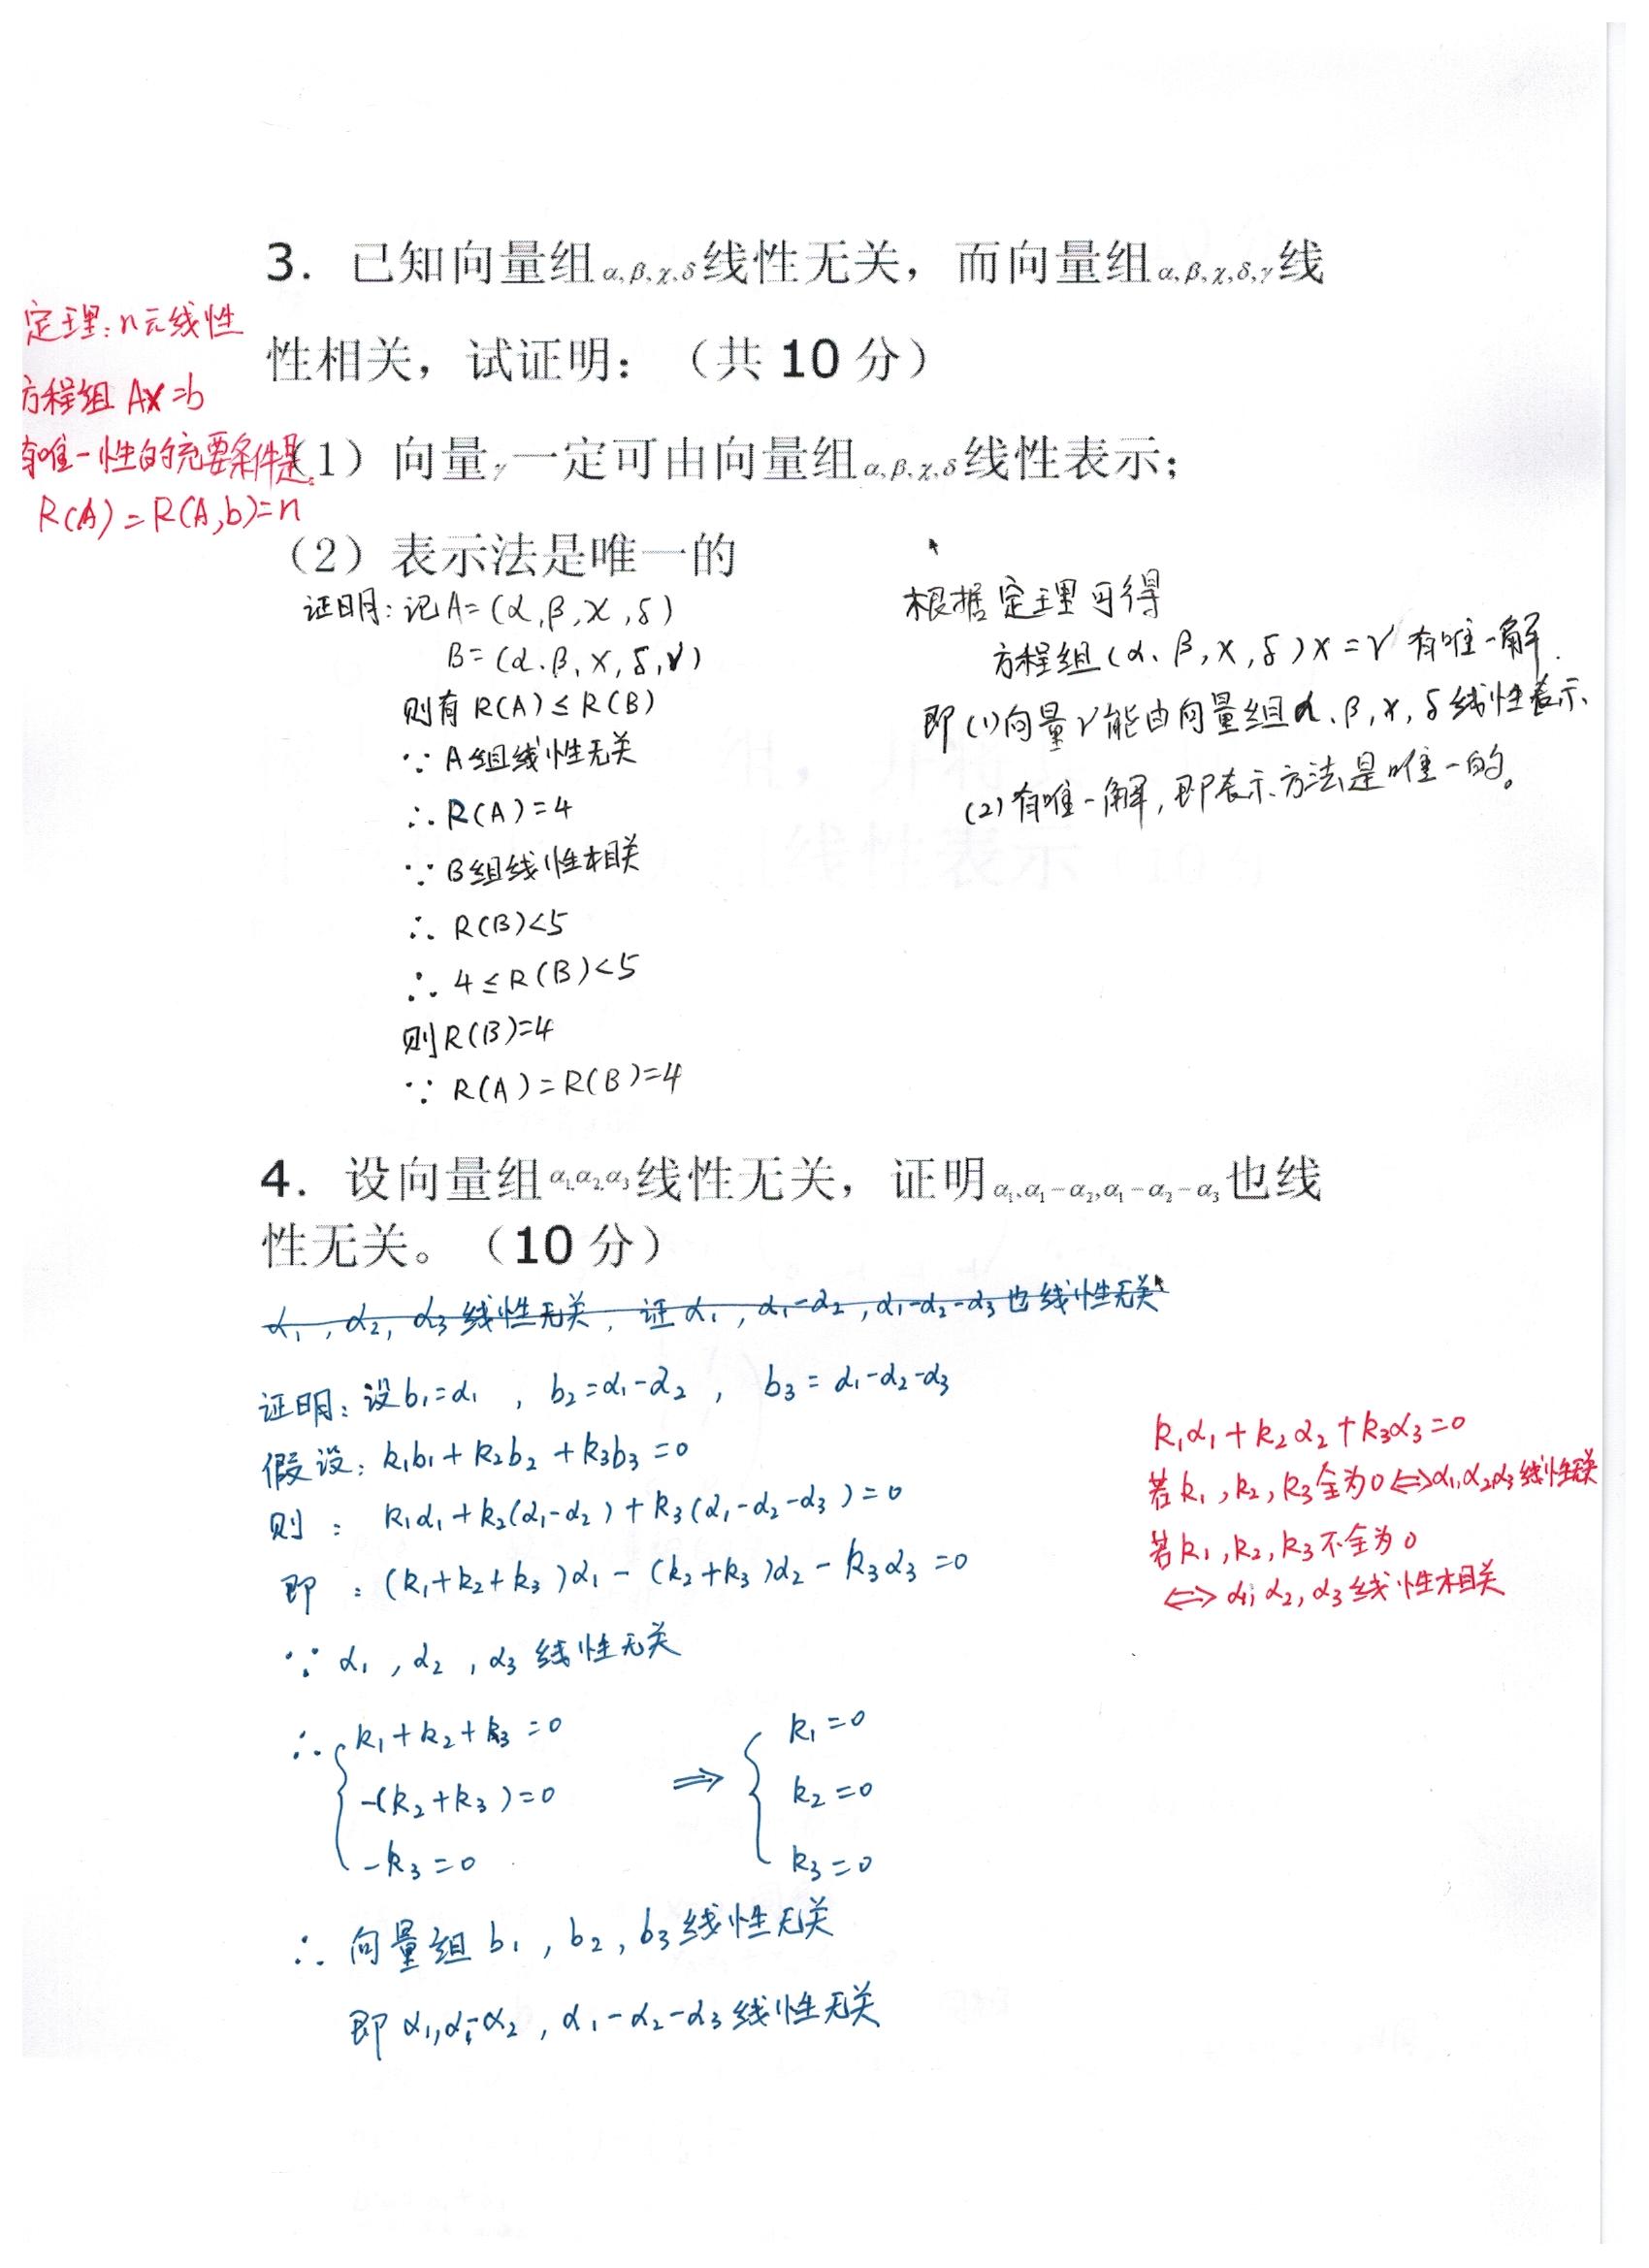 3. 已知向量组α,β,χ,δ线性无关，而向量组α,β,χ,δ,γ线
性相关，试证明：（共 10 分）
（1）向量γ一定可由向量组α,β,χ,δ线性表示；
（2）表示法是唯一的
定理：n元线性
方程组 Ax=b
有唯一性的充要条件是:
R(A)=R(A,b)=n
证明：记A=(α,β,χ,δ)
B=(α、β,χ,δ,γ)
则有 R(A)≤R(B)
∵ A组线性无关
∴ R(A)=4
∵ B组线性相关
∴ R(B)<5
∴ 4≤R(B)<5
则R(B)=4
∵ R(A)=R(B)=4
根据定理可得
方程组(α、β,χ,δ)x=γ 有唯一解.
即(1)向量γ能由向量组α、β,χ,δ线性表示、
(2)有唯一解,即表示方法是唯一的。
4. 设向量组α₁,α₂,α₃线性无关，证明α₁,α₁-α₂,α₁-α₂-α₃也线
性无关。（10 分）
α₁,α₂,α₃线性无关,证α₁,α₁-α₂,α₁-α₂-α₃也线性无关
证明：设b₁=α₁ , b₂=α₁-α₂ , b₃=α₁-α₂-α₃
假设：k₁b₁+k₂b₂+k₃b₃=0
则：k₁α₁+k₂(α₁-α₂)+k₃(α₁-α₂-α₃)=0
即：(k₁+k₂+k₃)α₁-(k₂+k₃)α₂-k₃α₃=0
∵ α₁,α₂,α₃线性无关
∴ { k₁+k₂+k₃=0 ⇒ { k₁=0
-(k₂+k₃)=0 k₂=0
-k₃=0 k₃=0
∴ 向量组b₁,b₂,b₃线性无关
即α₁,α₁-α₂,α₁-α₂-α₃线性无关
k₁α₁+k₂α₂+k₃α₃=0
若k₁,k₂,k₃全为0⇔α₁,α₂,α₃线性无关
若k₁,k₂,k₃不全为0
⇔α₁,α₂,α₃线性相关